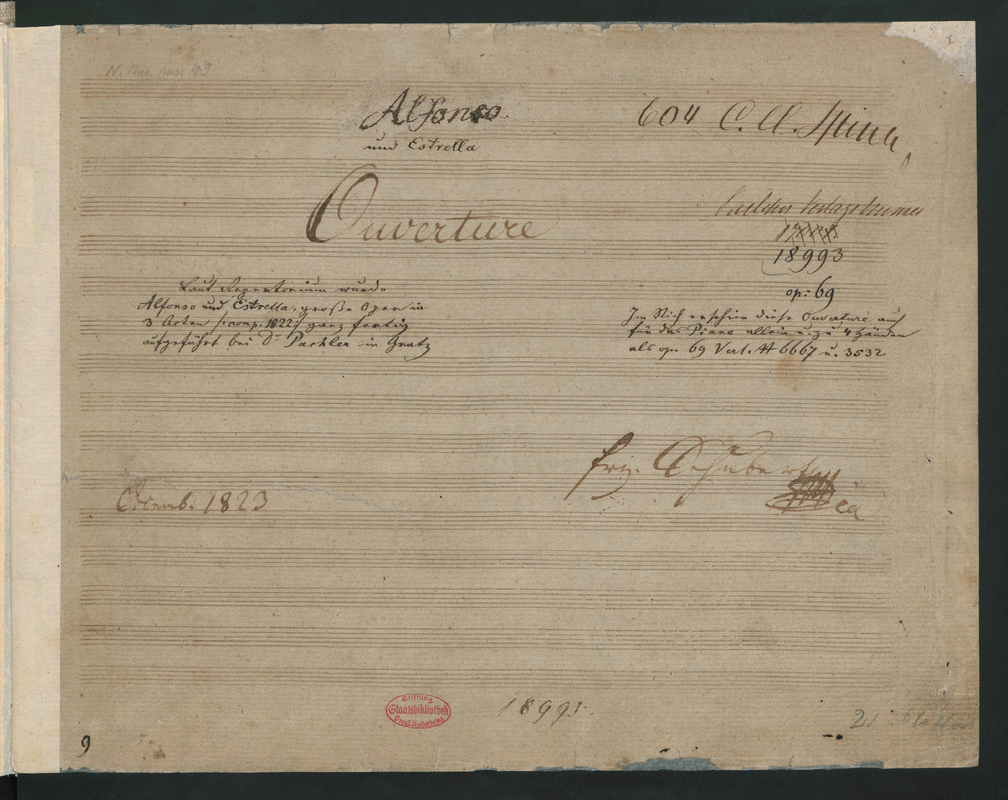 N. Mus. ms. 49
1
Alfonso
und Estrella
604 C. A. Spina
Ouverture
18993
op: 69
Laut Repertorium wurde
Alfonso und Estrella, große Oper in
3 Acten (comp. 1822) ganz fertig
aufgeführt bei Dr Pachler in Gratz
Im Stich erschien diese Ouverture auch
für das Piano allein u. zu 4 Händen
als op. 69 Verl. # 6667 u. 3532
frz. Schubert
Decemb. 1823
Stiftung
Staatsbibliothek
Preuß. Kulturbesitz
18993.
9